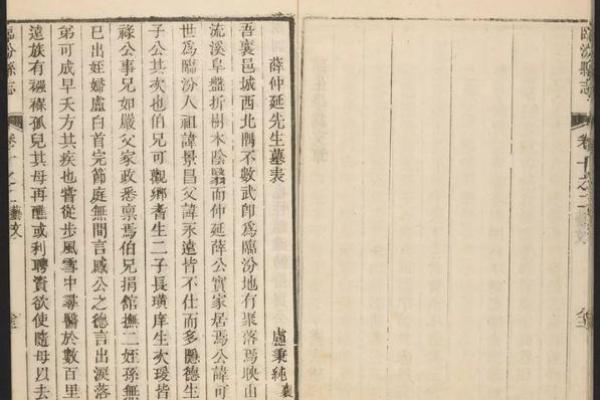 臨汾縣志 卷十之二 藝文
薛仲延先生墓表
盧秉純 襄
吾襄邑城西北隅不數武卽爲臨汾地有聚落焉映山
流溪阜盤折樹木陰翳而仲延薛公實家居焉公諱可
世爲臨汾人祖諱景昌父諱永遠皆不仕而多隱德生
子公其次也伯兄可觀鄉耆生二子長璜庠生次瑗皆
祿公事兄如嚴父家政悉稟焉伯兄捐館撫二姪孫無
已出姪婦盧白首完節庭無間言感公之德言出淚落
弟可成早夭方其疾也嘗徒步風雪中尋醫於數百里
遠族有襁褓孤兒其母再醮或利聘貲欲使隨母以去
臨汾縣志 卷十之二 藝文